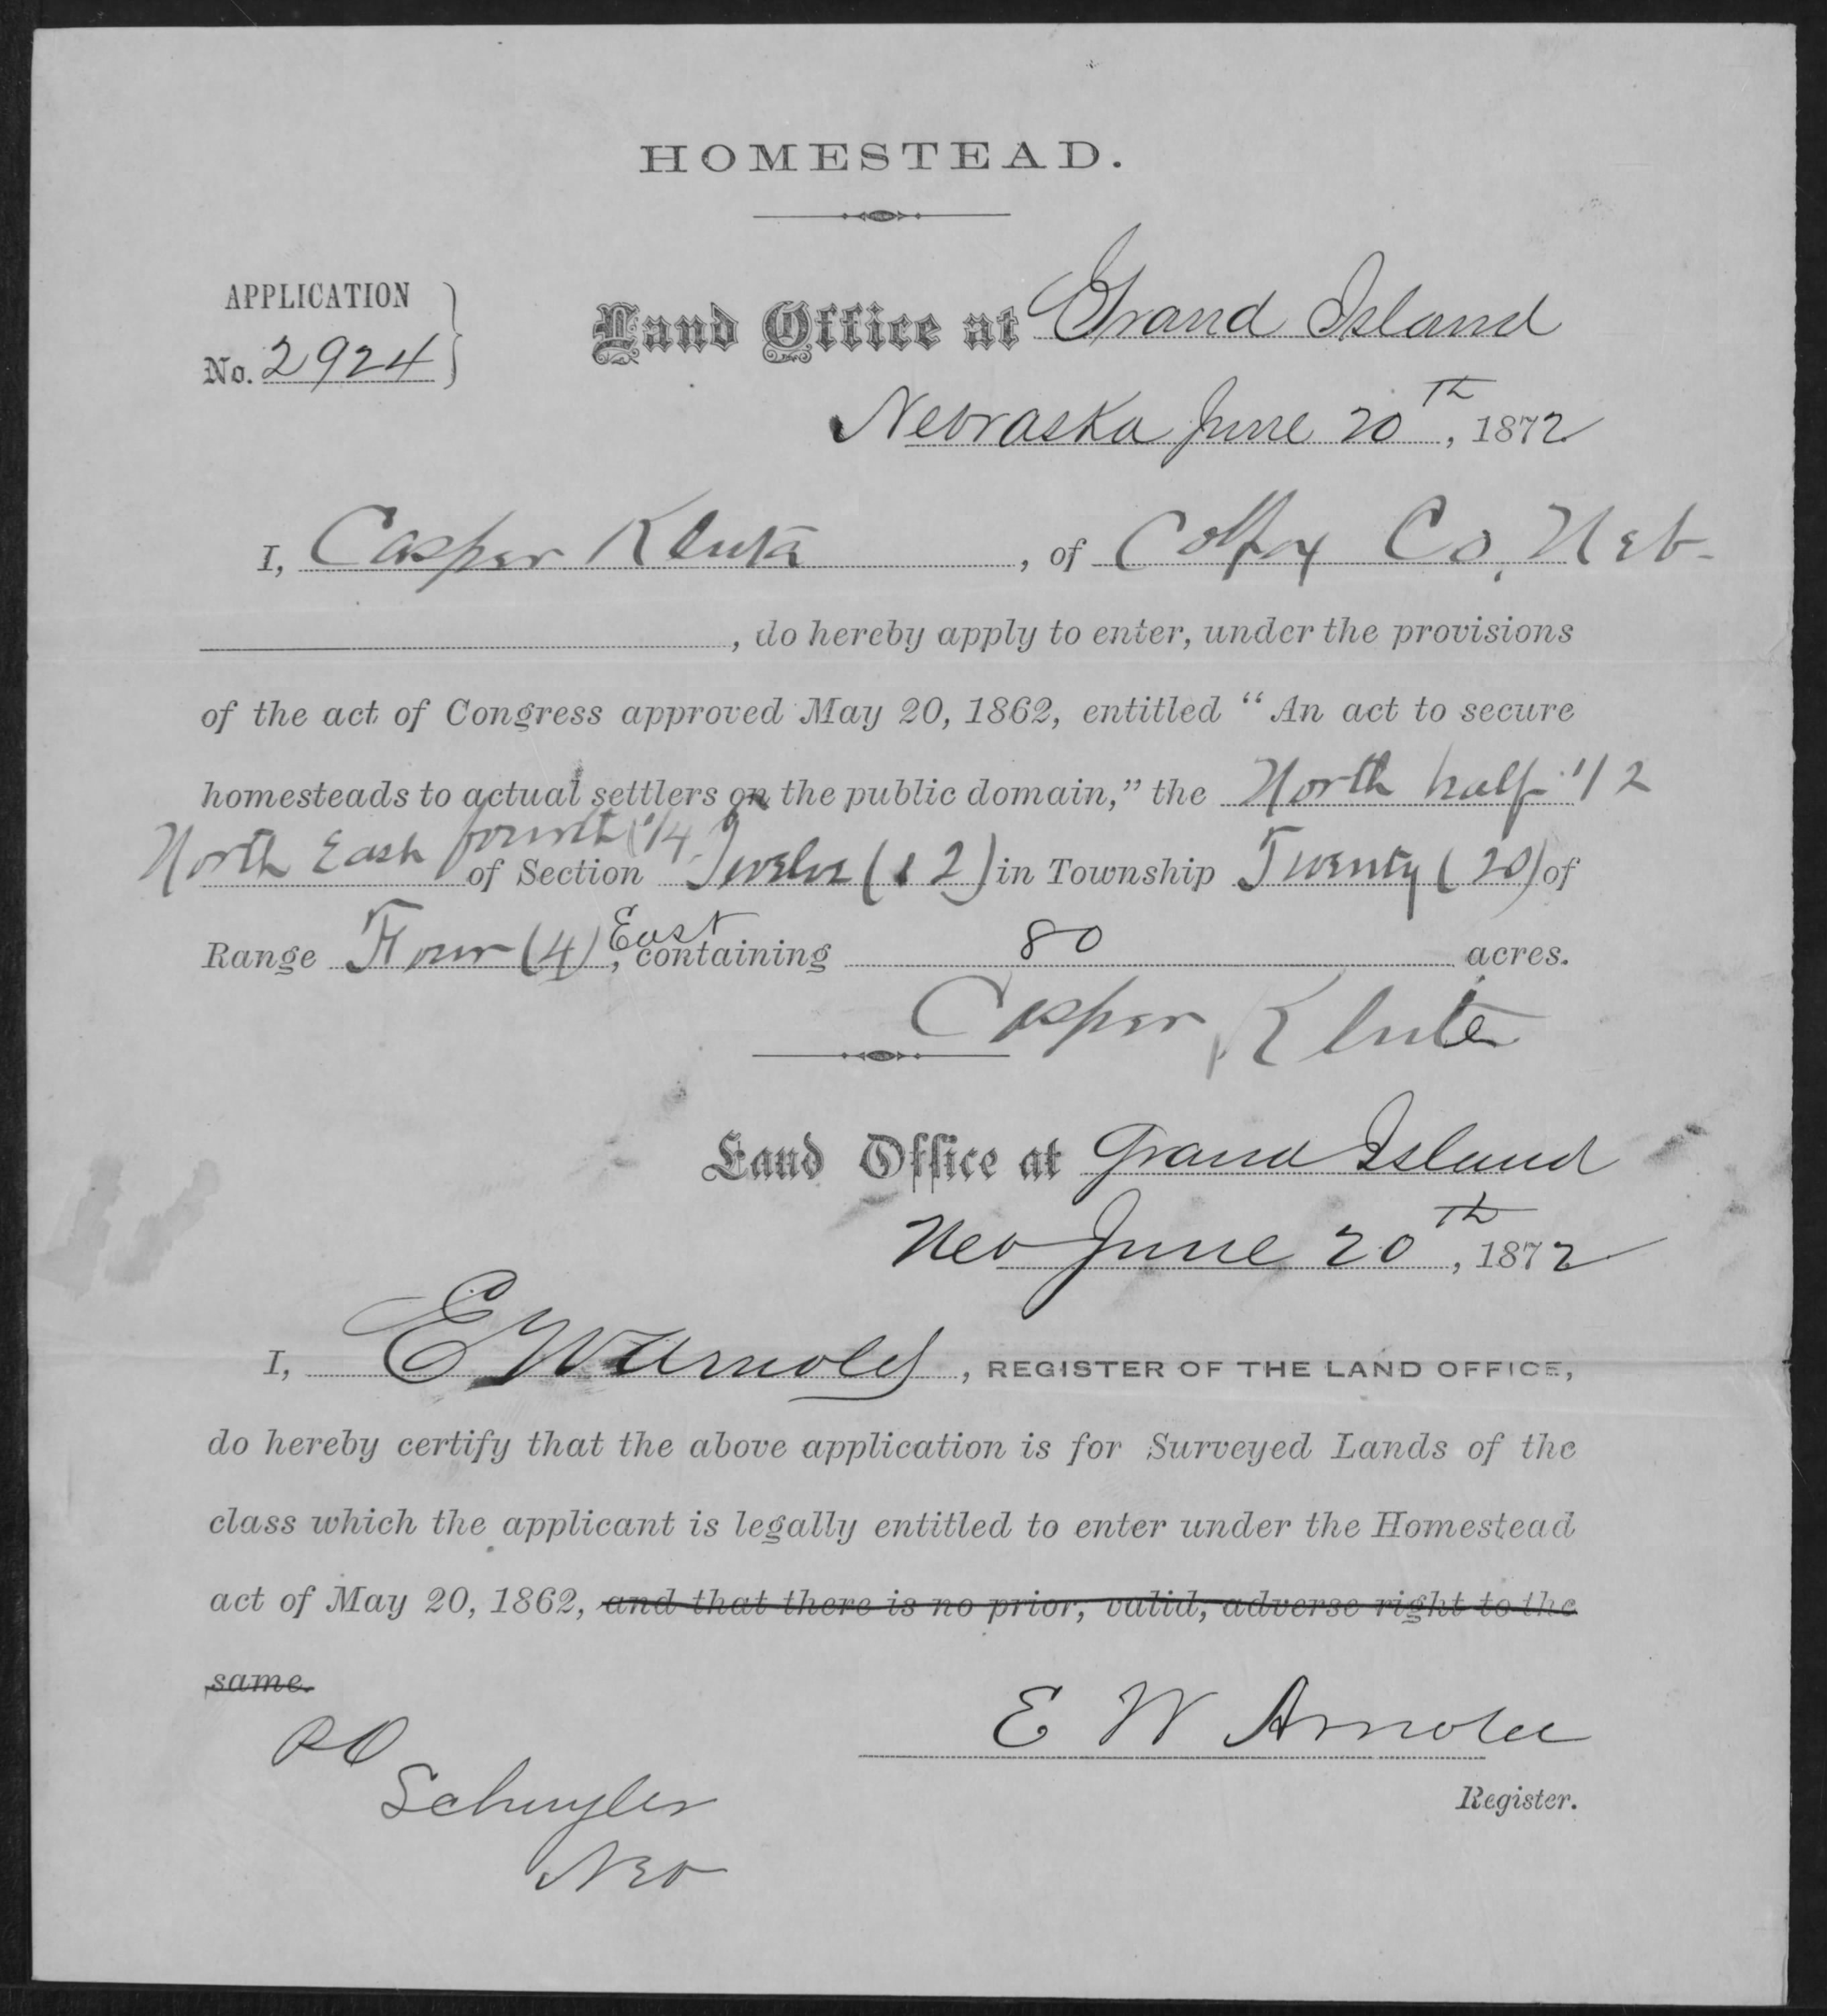 HOMESTEAD.
APPLICATION
No. 2924
Land Office at Grand Island
Nebraska June 20th, 1872
I, Casper Klute, of Colfax Co, Neb-
, do hereby apply to enter, under the provisions
of the act of Congress approved May 20, 1862, entitled "An act to secure
homesteads to actual settlers on the public domain," the North half 1/2
North East fourth 1/4 of Section Twelve (12) in Township Twenty (20) of
Range Four (4) East, containing 80 acres.
Casper Klute
Land Office at Grand Island
Neb June 20th, 1872
I, E W Arnold, REGISTER OF THE LAND OFFICE,
do hereby certify that the above application is for Surveyed Lands of the
class which the applicant is legally entitled to enter under the Homestead
act of May 20, 1862, and that there is no prior, valid, adverse right to the
same.
E W Arnold
Register.
PO
Schuyler
Neb